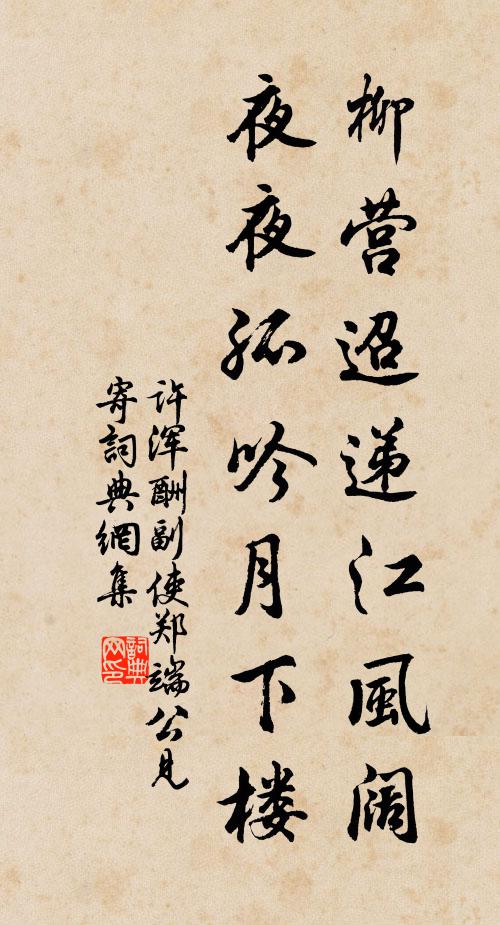 柳营迢递江風阔
夜夜孤吟月下楼
许浑酬副使郑端公見
寄詞典網集
詞典网印